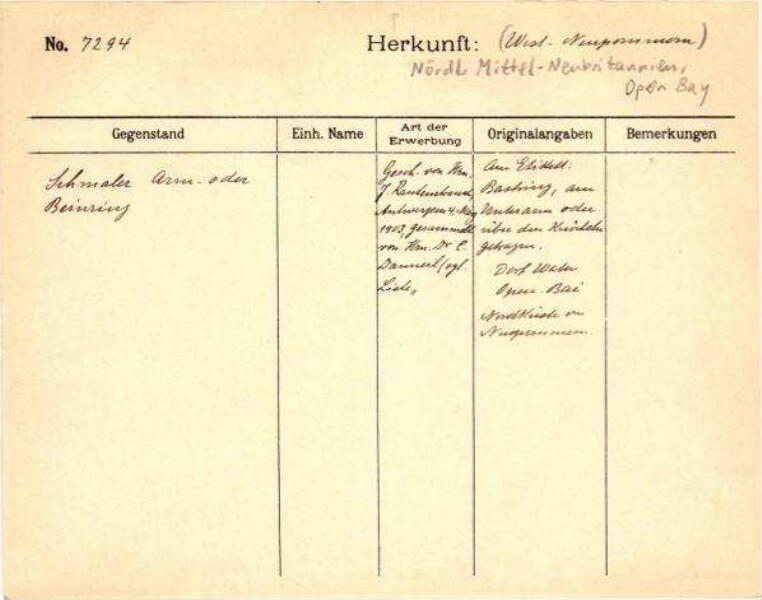 No. 7294
Herkunft: (West-Neupommern)
Nördl. Mittel-Neubritannien,
Open Bay
Gegenstand
Einh. Name
Art der
Erwerbung
Originalangaben
Bemerkungen
Schmaler Arm- oder
Beinring
Gesch. von Hrn.
J. Rautenstrauch,
Antwerpen 4. May
1903, gesammelt
von Hrn. Dr E.
(vgl.
Liste,
Am Etikett:
Bastring, am
Unterarm oder
über den Knöcheln
getragen.
Dorf
Open Bai
Nordküste von
Neupommern.